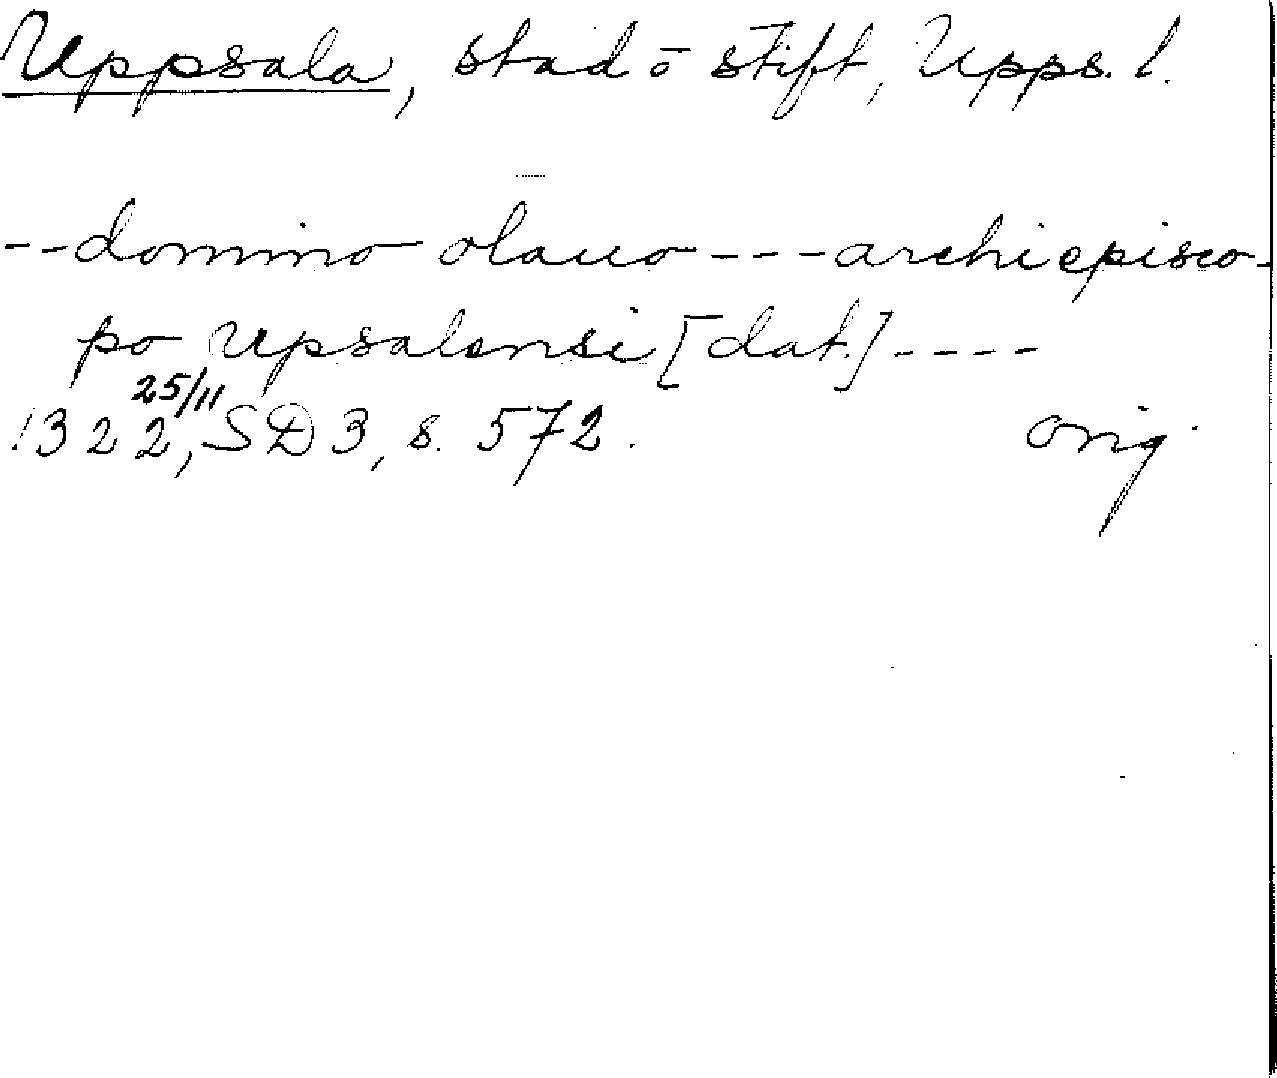 Uppsala, stad ō stift, Upps. l.
--domino olauo---archiepisco-
po Upsalensi [dat.]----
1322 25/11, SD 3, s. 572. orig.